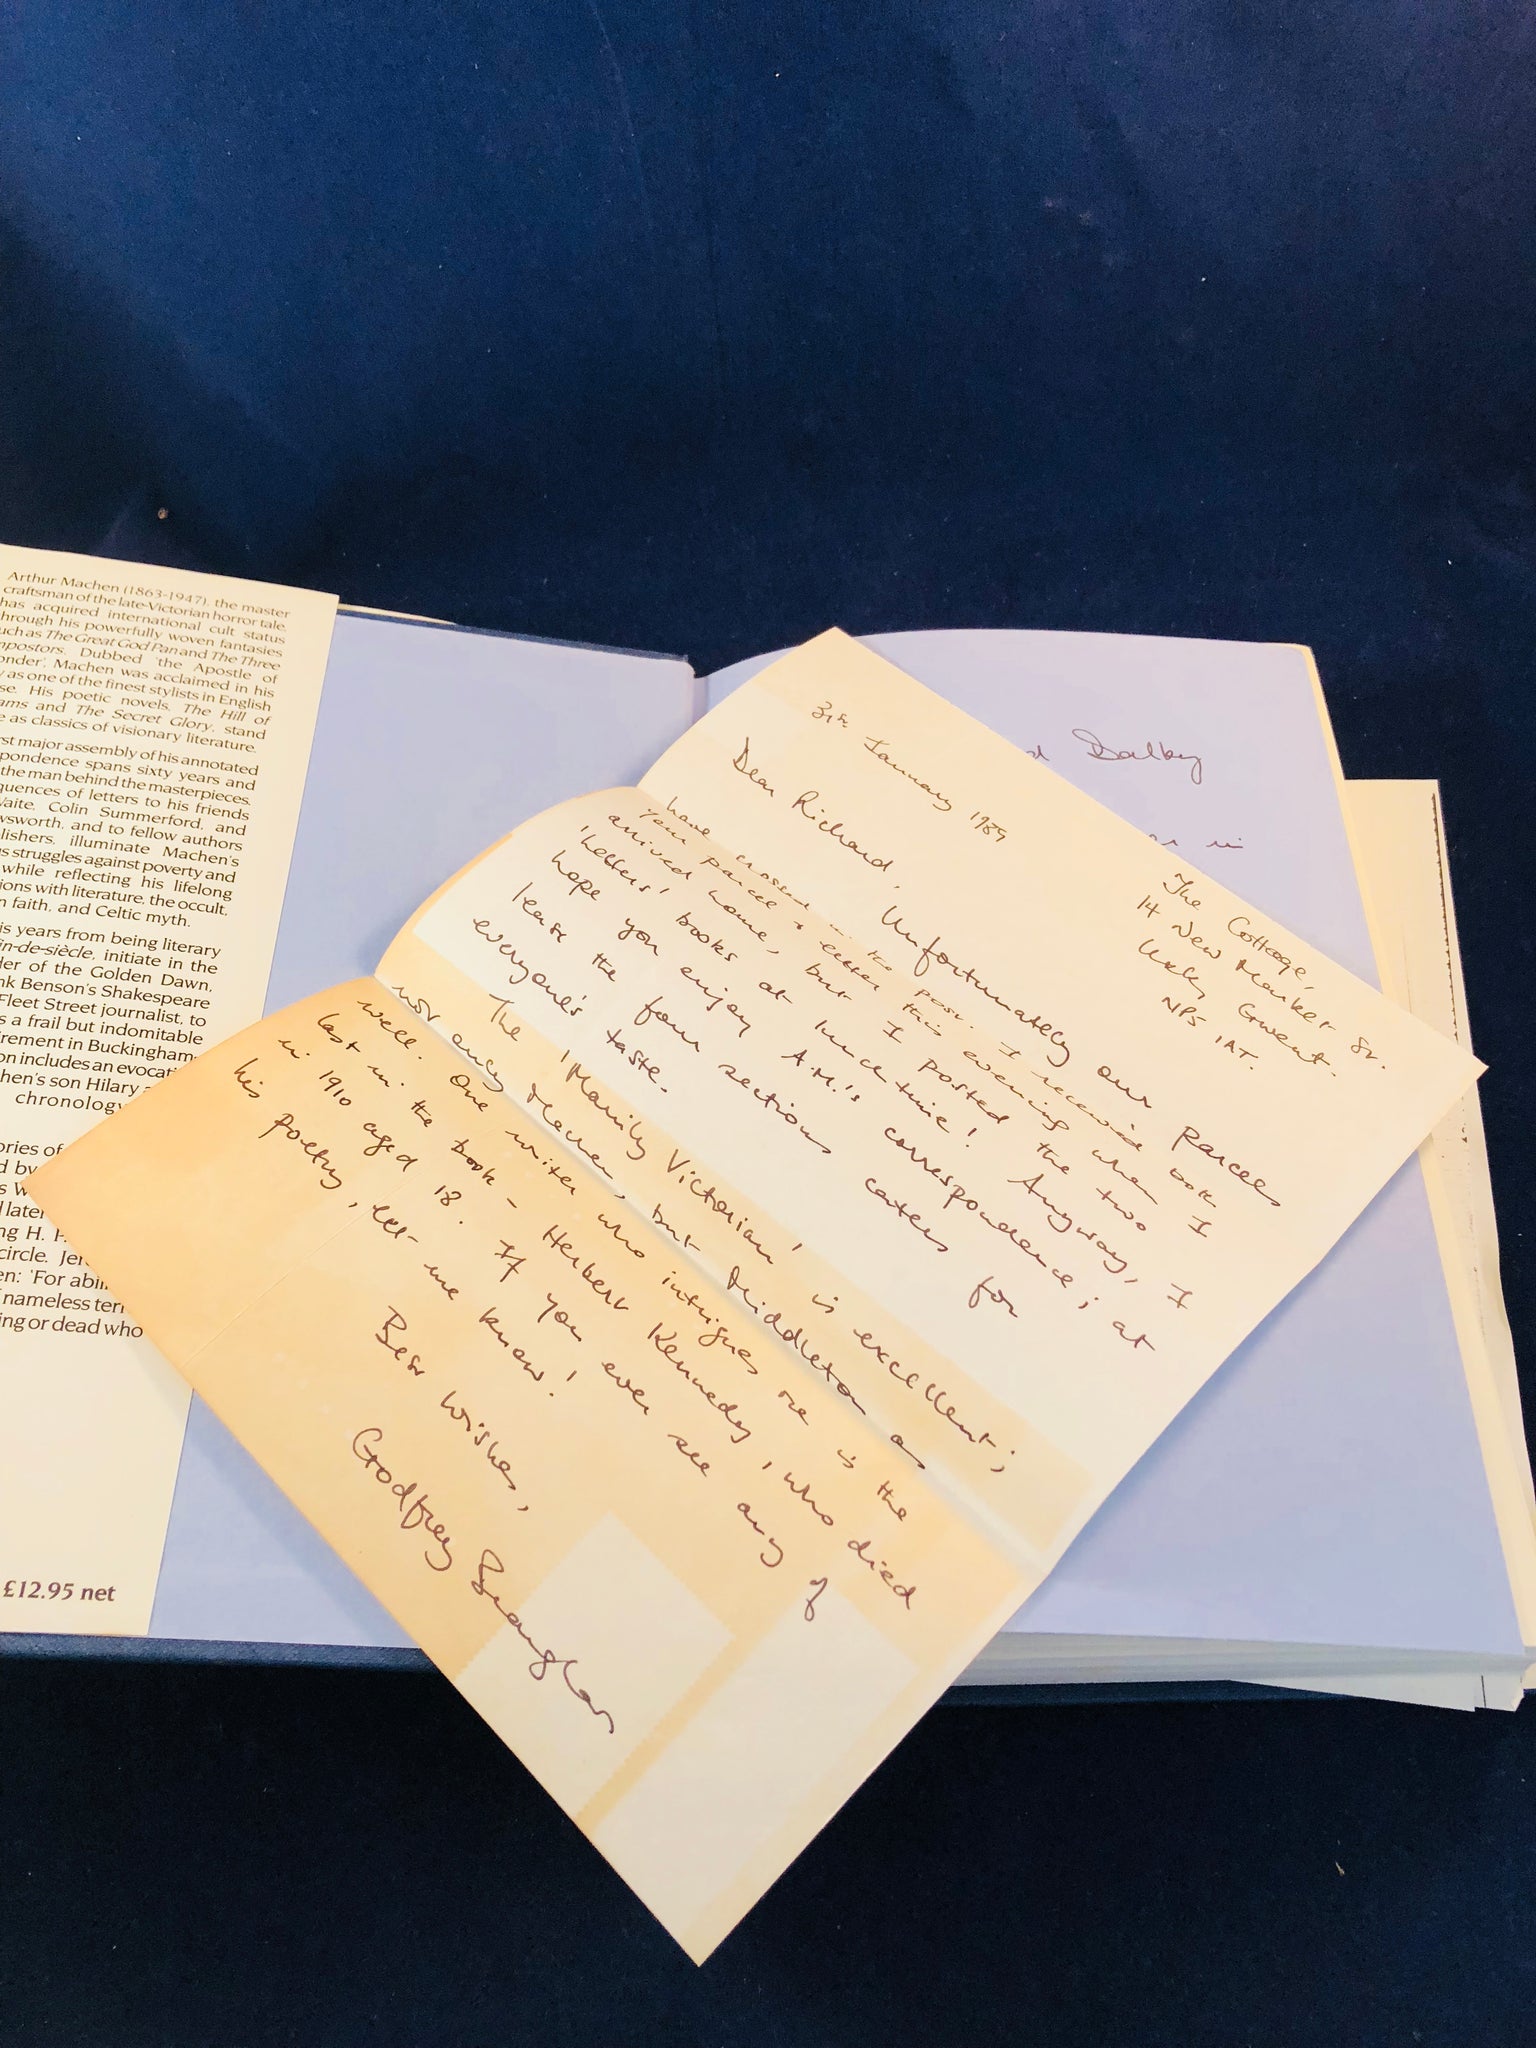 Arthur Machen (1863-1947), the master
craftsman of the late-Victorian horror tale,
has acquired international cult status
hrough his powerfully woven fantasies
uch as The Great God Pan and The Three
mpostors. Dubbed 'the Apostle of
onder', Machen was acclaimed in his
y as one of the finest stylists in English
se. His poetic novels, The Hill of
ams and The Secret Glory, stand
e as classics of visionary literature.
rst major assembly of his annotated
pondence spans sixty years and
the man behind the masterpieces.
quences of letters to his friends
Waite, Colin Summerford, and
wsworth, and to fellow authors
olishers, illuminate Machen's
s struggles against poverty and
while reflecting his lifelong
ions with literature, the occult,
n faith, and Celtic myth.
is years from being literary
in-de-siècle, initiate in the
der of the Golden Dawn,
nk Benson's Shakespeare
Fleet Street journalist, to
s a frail but indomitable
irement in Buckingham-
on includes an evocati
hen's son Hilary
chronology
ories of
d by
s W
d later
ng H. P.
circle. Jer
en: 'For abili
nameless terr
ing or dead who
£12.95 net
d Dalby
in
The Cottage,
14 New Market St.
Usk, Gwent.
NP5 1AT.
3rd January 1989
Dear Richard,
Unfortunately our parcels
have crossed in the post. I received book
your parcel & letter this evening when I
arrived home, but I posted the two
'Letters' books at lunch time! Anyway, I
hope you enjoy A.M.'s correspondence; at
least the four sections caters for
everyone's taste.
The 'Manily Victorian' is excellent;
not only Machen, but Middleton as
well. One writer who intrigues me is the
last in the book - Herbert Kennedy, who died
in 1910 aged 18. If you ever see any of
his poetry, let me know!
Best Wishes,
Godfrey Brangham